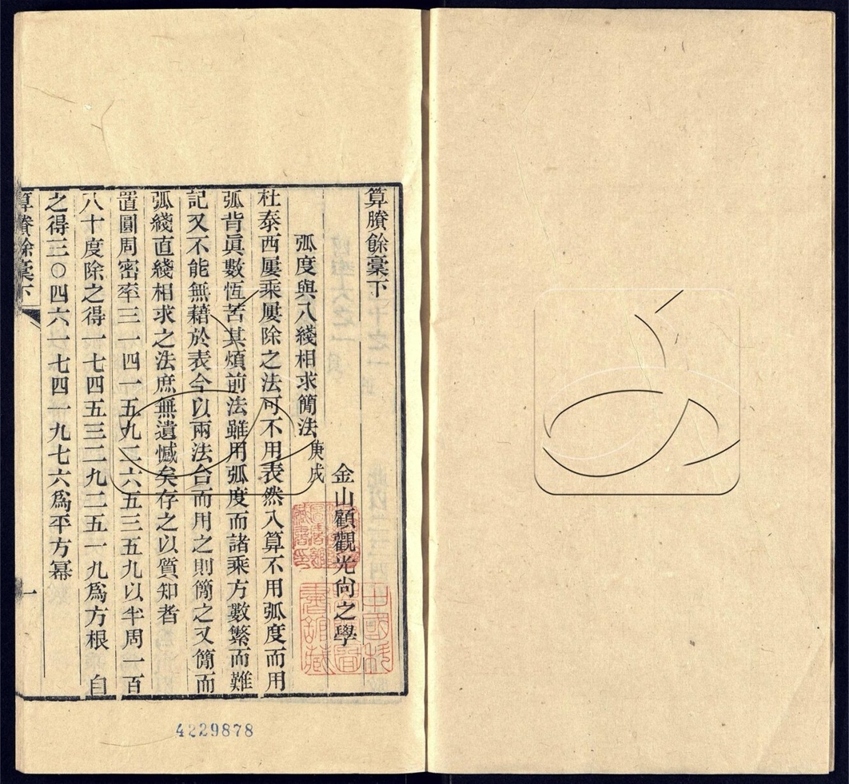 算賸餘稾下
金山顧觀光尙之學
弧度與八綫相求簡法庚戌
杜泰西屢乘屢除之法可不用表然入算不用弧度而用
弧背眞數恆苦其煩前法雖用弧度而諸乘方數繁而難
記又不能無藉於表今以兩法合而用之則簡之又簡而
弧綫直綫相求之法庶無遺憾矣存之以質知者
置圓周密率三一四一五九二六五三五九以半周一百
八十度除之得一七四五三二九二五一九爲方根自
之得三〇四六一七四一九七六爲平方冪
算賸餘稾下
一
4229878